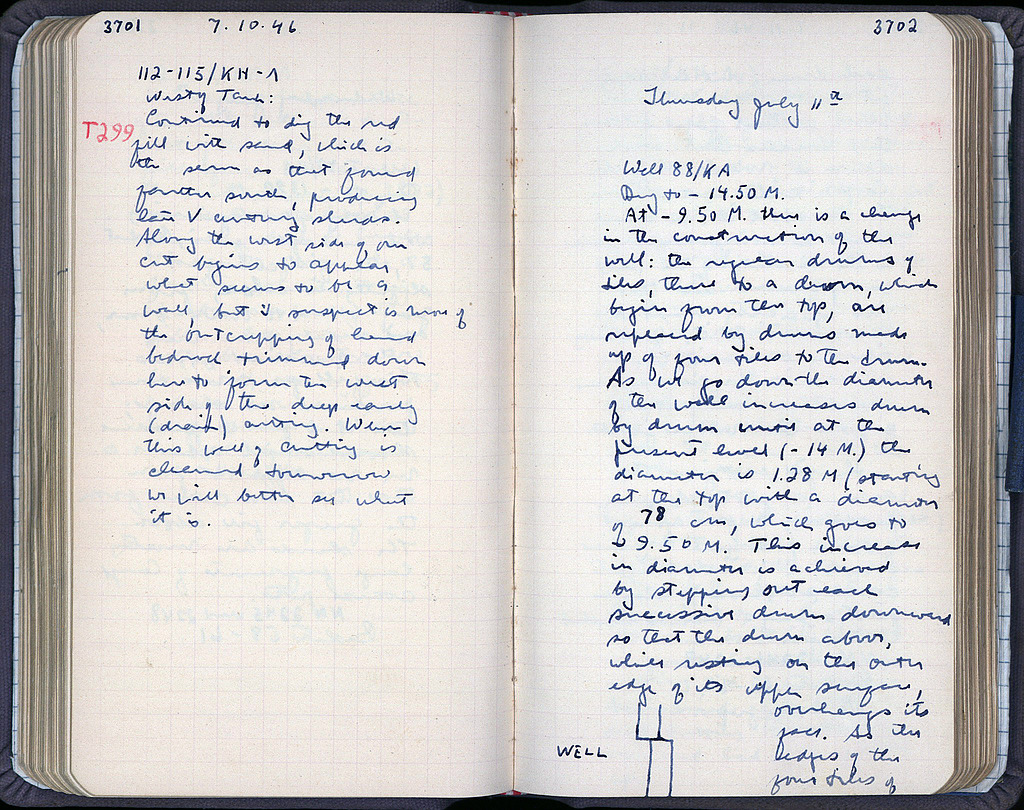 3701 7.10.46
112-115/KH-Λ
Westy Tank:
T299
Continued to dig the red
fill with sand, which is
the same as that found
farther south, producing
late V century sherds.
Along the west side of our
cut begins to appear
what seems to be a
wall, but I suspect is more of
the outcropping of hard
bedrock trimmed down
here to form the west
side of the deep early
(drain) cutting. When
this wall of cutting is
cleaned tomorrow
we will better see what
it is.
3702
Thursday July 11th
Well 88/KA
Dug to - 14.50 M.
At - 9.50 M. there is a change
in the construction of the
well: the regular drums of
tiles, three to a drum, which
begin from the top, are
replaced by drums made
up of four tiles to the drum.
As we go down the diameter
of the well increases drum
by drum until at the
present level (- 14 M.) the
diameter is 1.28 M (starting
at the top with a diameter
of 78 cm, which goes to
- 9.50 M. This increase
in diameter is achieved
by stepping out each
successive drum downward
so that the drum above,
while resting on the outer
edge of its upper surface,
overhangs its
face. As the
edges of the
four tiles of
WELL